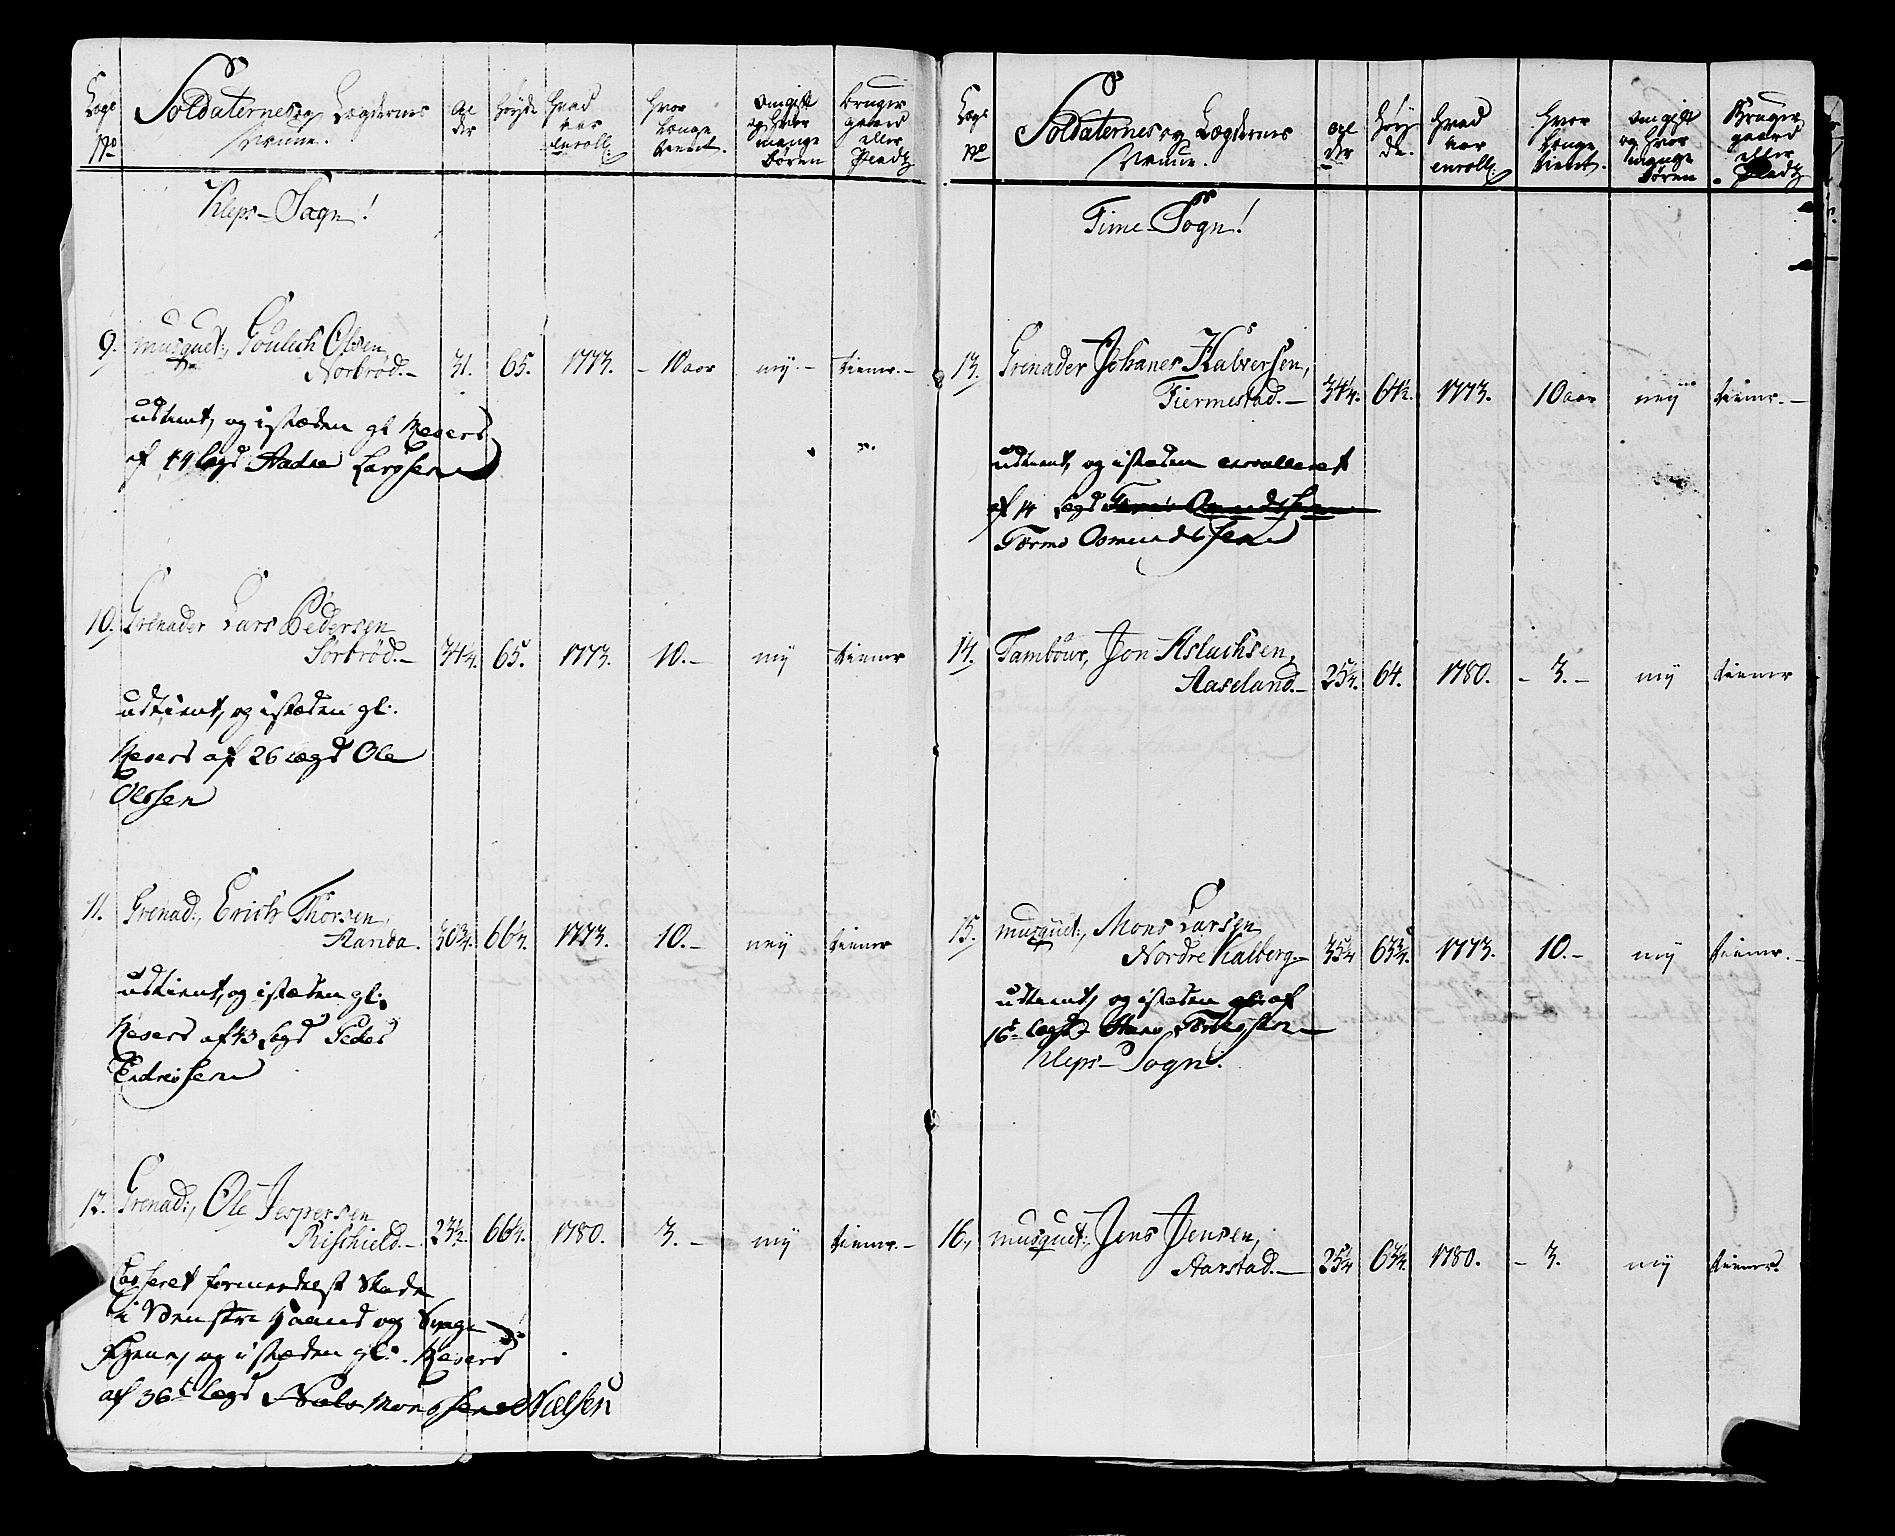 Lægs No
Soldaternes og Lægdernes Navne.
Al der
Høyde
Hvad aar enroll:
Hvor Længe tient.
Om gift og hvor mange Børen
Bruger gaard eller Plads
Kleps-Sogn!
9. Musquet:, Goulech Olsen
Norbrød.- 31. 65. 1773. - 10 aar nej - tiener.-
udtient, og istæden gl Reserv
af 14 Lægd Aadne Larssen
10. Grenader Lars Pedersen
Sørbrød.- 34 1/4. 65. 1773. 10.- nej tiener
udtient, og istæden gl:
Reserv af 26 Lægd Ole
Olssen
11. Grenad:, Erich Thorsen,
Aanda. 30 3/4. 66 1/2. 1773. 10.- nej tiener
udtient, og istæden gl:
Reserv af 43 Lægd Peder
Endresen
12. Grenad:, Ole Jespersen
Risschield.- 23 1/2. 66 1/4. 1780. 3.- nej tiener.-
Casseret formedelst Skade
i Venstre Haand og Svage
Øyene, og istæden gl: Reserv
af 36te Lægd Mons Nielsen
Lægs No
Soldaternes og Lægdernes Navne.
Al der
Høy de.
Hvad aar enroll:
Hvor Længe tient.
Om gift og hvor mange Børen
Bruger gaard eller Plads
Time-Sogn!
13. Grenader Johanes Halversen,
Tiermestad.- 34 1/4. 64 1/2. 1773. 10 aar nej tiener.-
udtient, og istæden enrolleret
af 14 Lægd
Tormo Osmundssen
14. Tambour, Jon Aslachsen,
Aaseland.- 25 1/4. 64. 1780. - 3.- nej tiener
15. Musquet:, Mons Larsen
Nordre Kalberg.- 35 1/4 63 3/4. 1773. 10.- nej tiener.-
udtient, og istæden gl: af
16te Lægd
Kleps-Sogn.
16., Musquet:, Jens Jensen,
Aarstad.- 25 1/4 63 1/4. 1780. - 3. nej tiener.